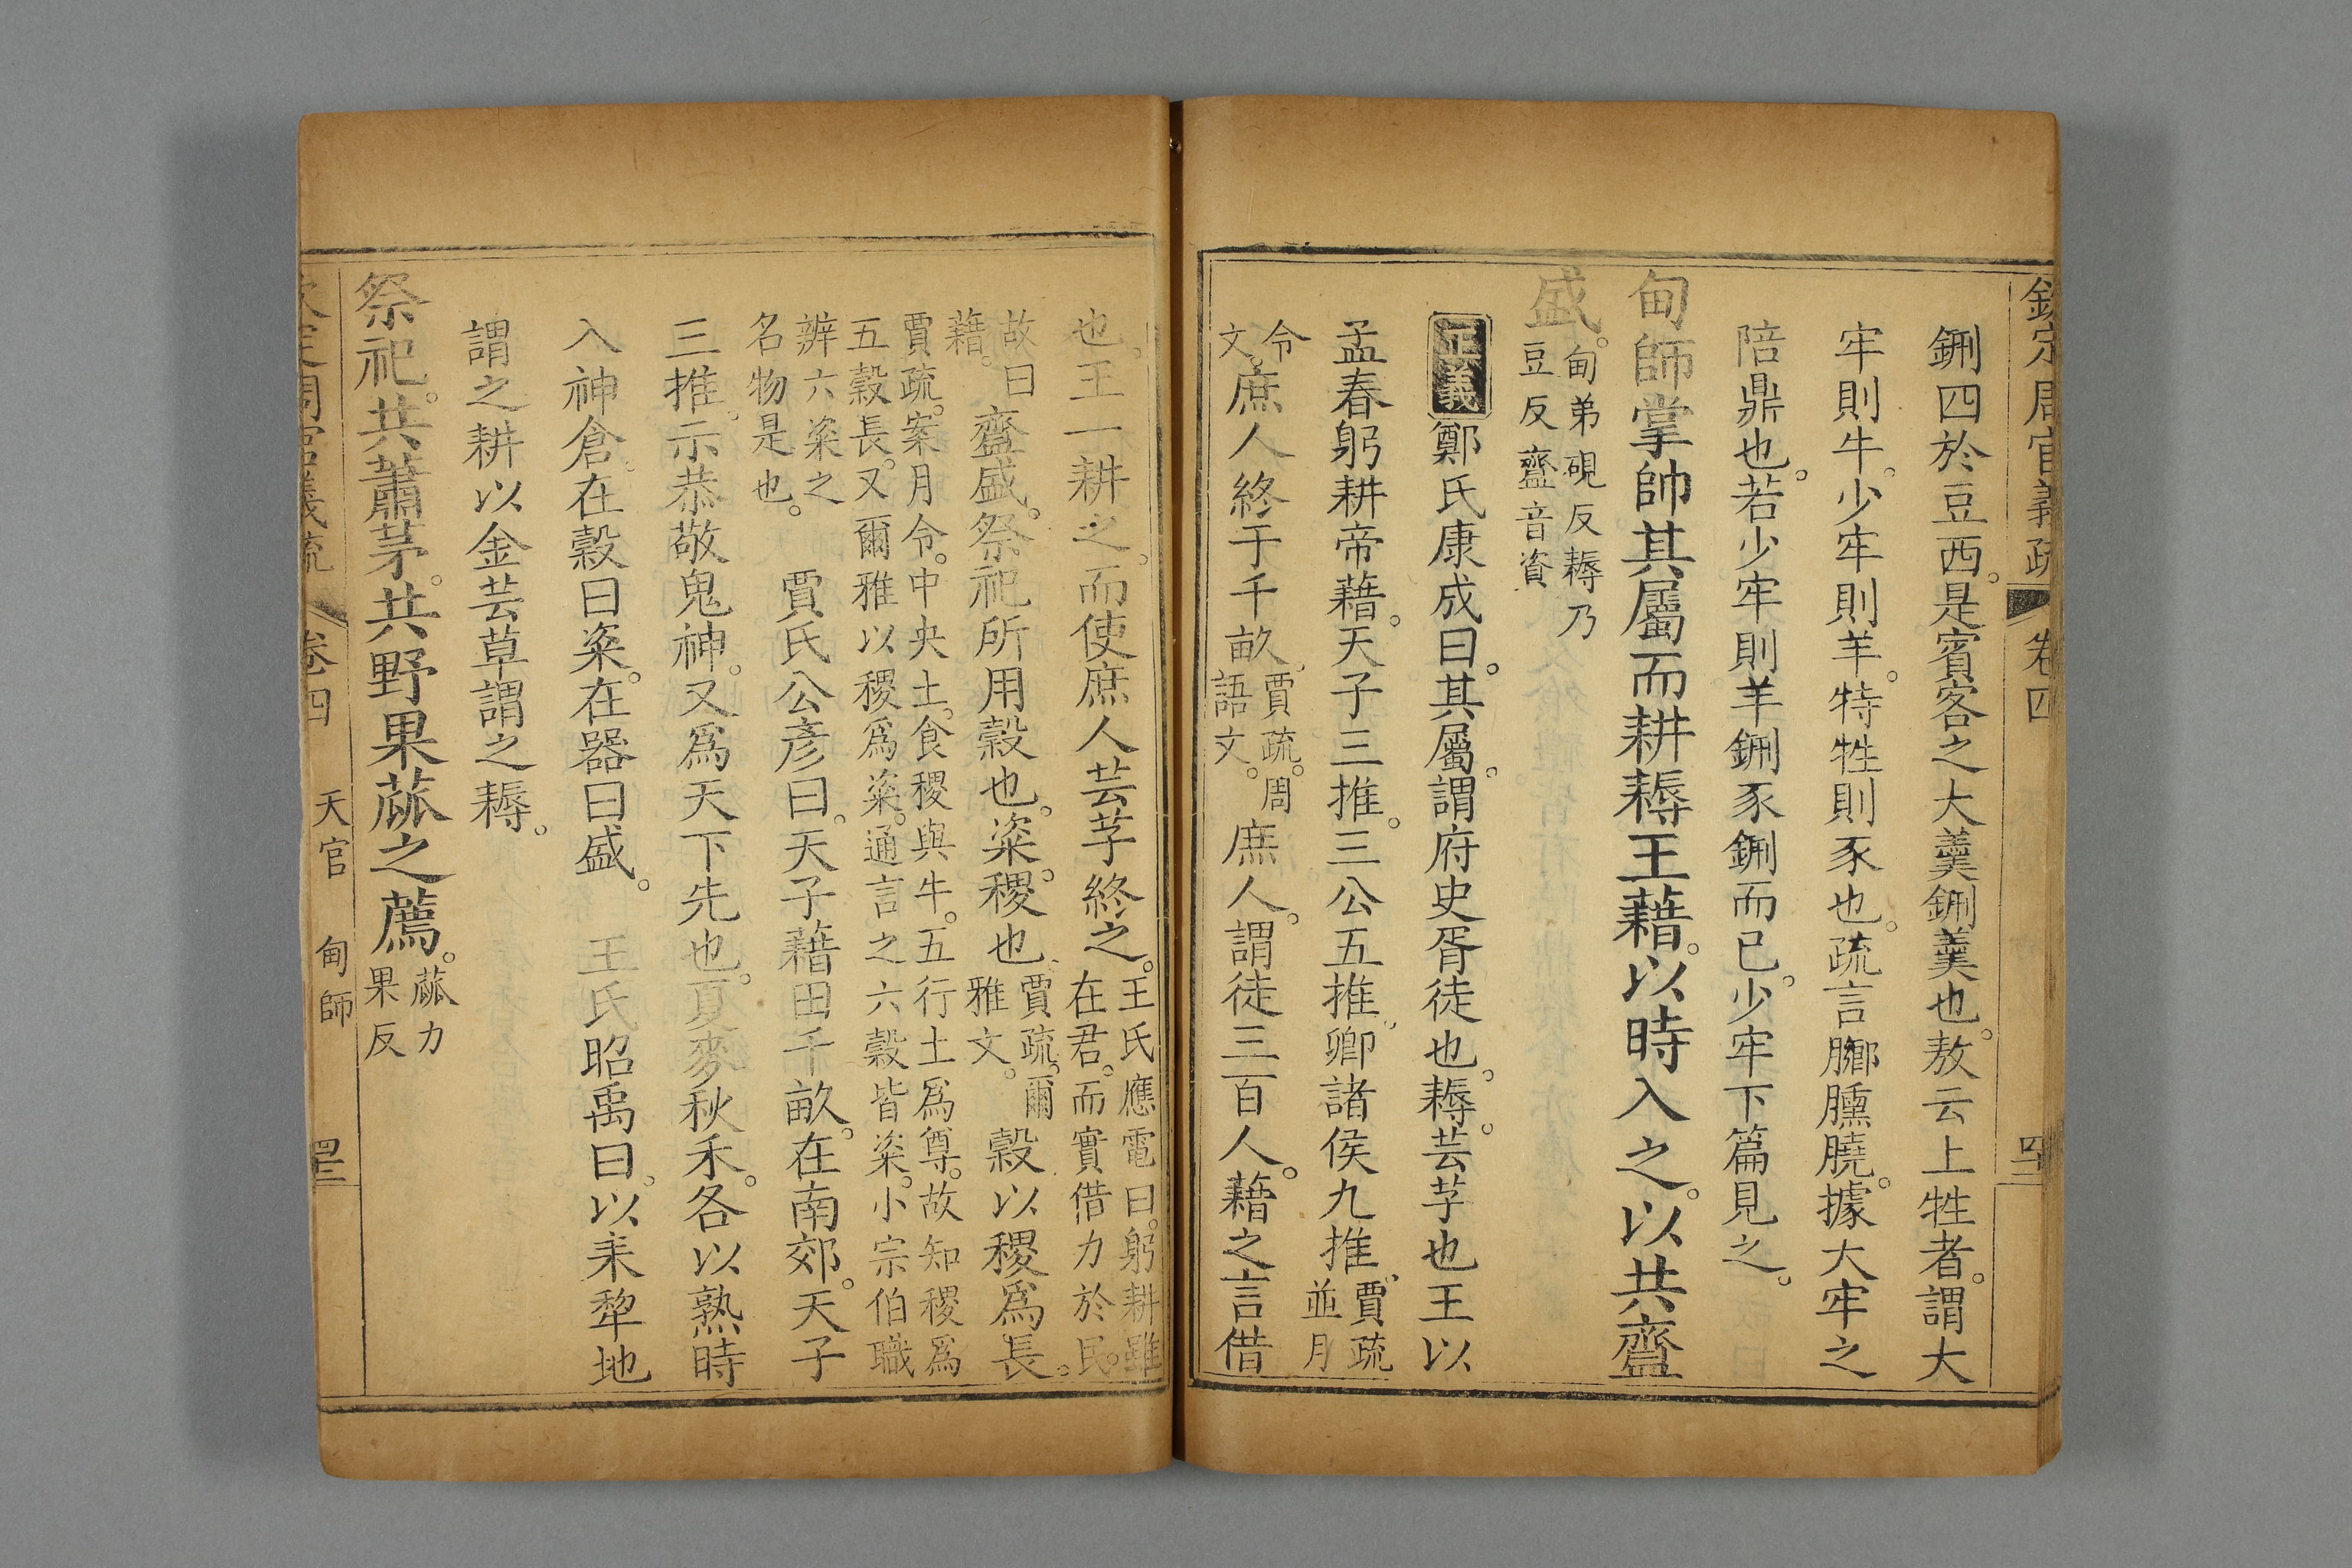 欽定周官義疏 卷四
四二
鉶四於豆西。是賓客之大羹鉶羹也。敖云上牲者。謂大
牢則牛。少牢則羊。特牲則豕也。疏言膷臐膮。據大牢之
陪鼎也。若少牢則羊鉶豕鉶而已。少牢下篇見之。
甸師掌帥其屬而耕耨王藉。以時入之。以共齍
盛。甸弟硯反耨乃
豆反齍音資
正義鄭氏康成曰。其屬。謂府史胥徒也。耨。芸芓也王以
孟春躬耕帝藉。天子三推。三公五推。卿諸侯九推。賈疏
並月
令
文。庶人終于千畝。賈疏。周
語文。庶人。謂徒三百人。藉之言借
也。王一耕之。而使庶人芸芓終之。王氏應電曰。躬耕雖
在君。而實借力於民。
故曰
藉。齍盛。祭祀所用穀也。粢。稷也。賈疏。爾
雅文。穀以稷爲長。
賈疏。案月令。中央土。食稷與牛。五行土爲尊。故知稷爲
五穀長。又爾雅以稷爲粢。通言之六穀皆粢。小宗伯職
辨六粢之
名物是也。賈氏公彥曰。天子藉田千畝。在南郊。天子
三推。示恭敬鬼神。又爲天下先也。夏麥秋禾。各以熟時
入神倉。在穀曰粢。在器曰盛。 王氏昭禹曰。以耒犂地
謂之耕以金芸草謂之耨。
祭祀。共蕭茅。共野果蓏之薦。蓏力
果反
周官義疏 卷四 天官 甸師
四三